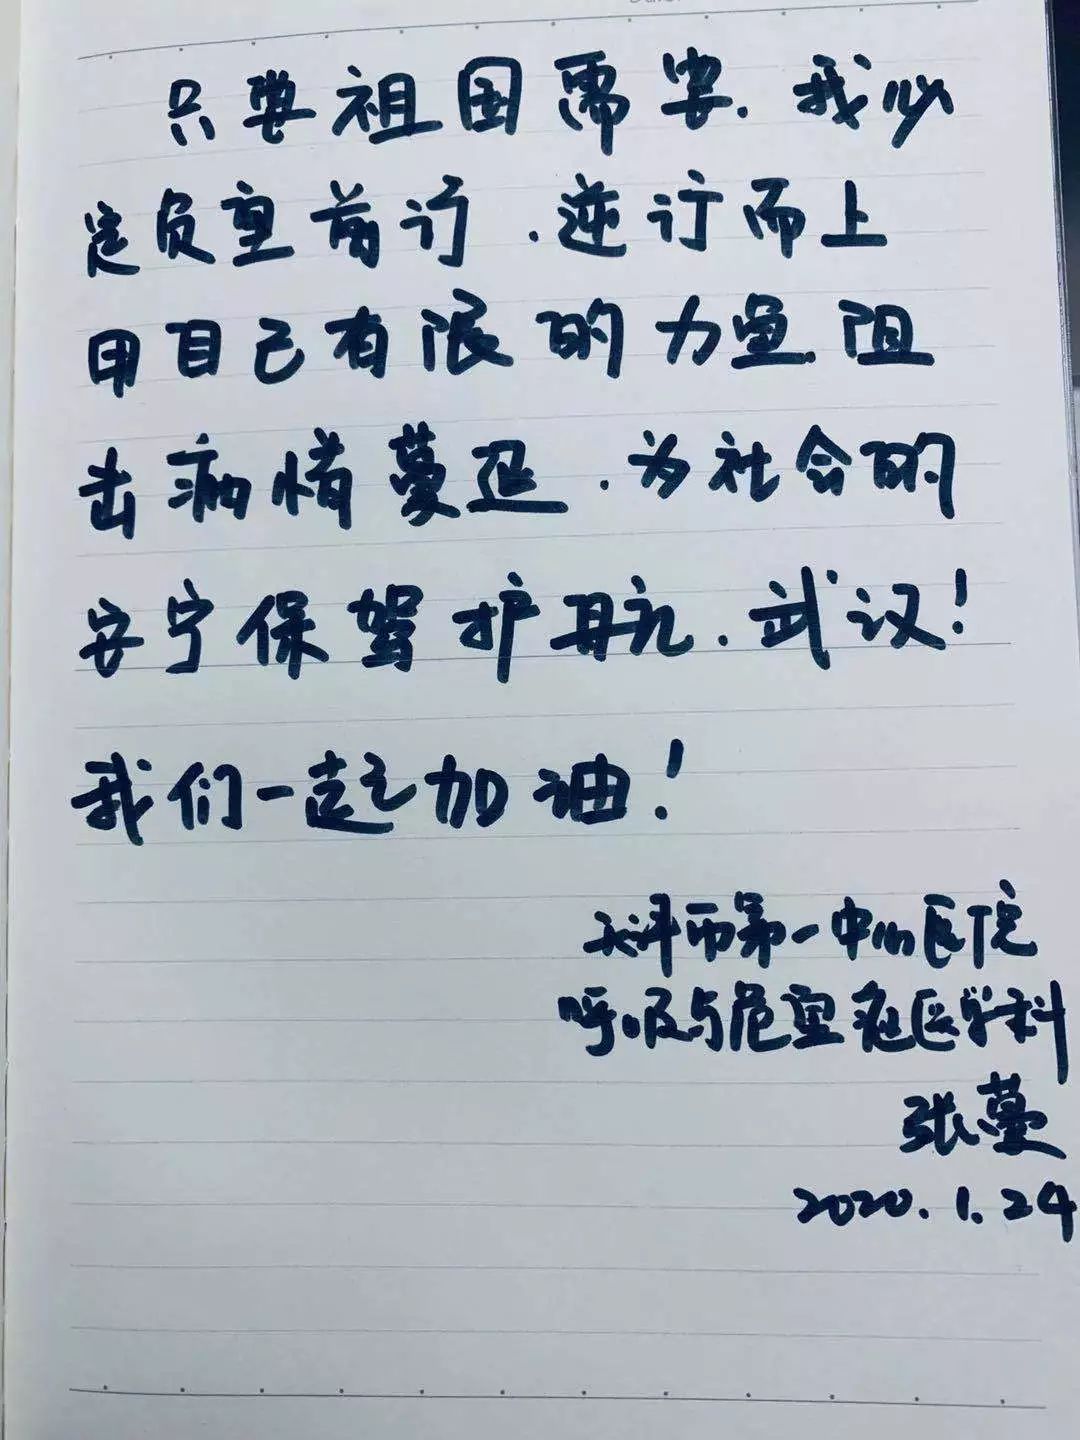 只要祖国需要.我必
定负重前行.逆行而上
用自己有限的力量.阻
击病情蔓延.为社会的
安宁保驾护航.武汉!
我们一起加油!
天津市第一中心医院
呼吸与危重症医学科
张蔓
2020.1.24